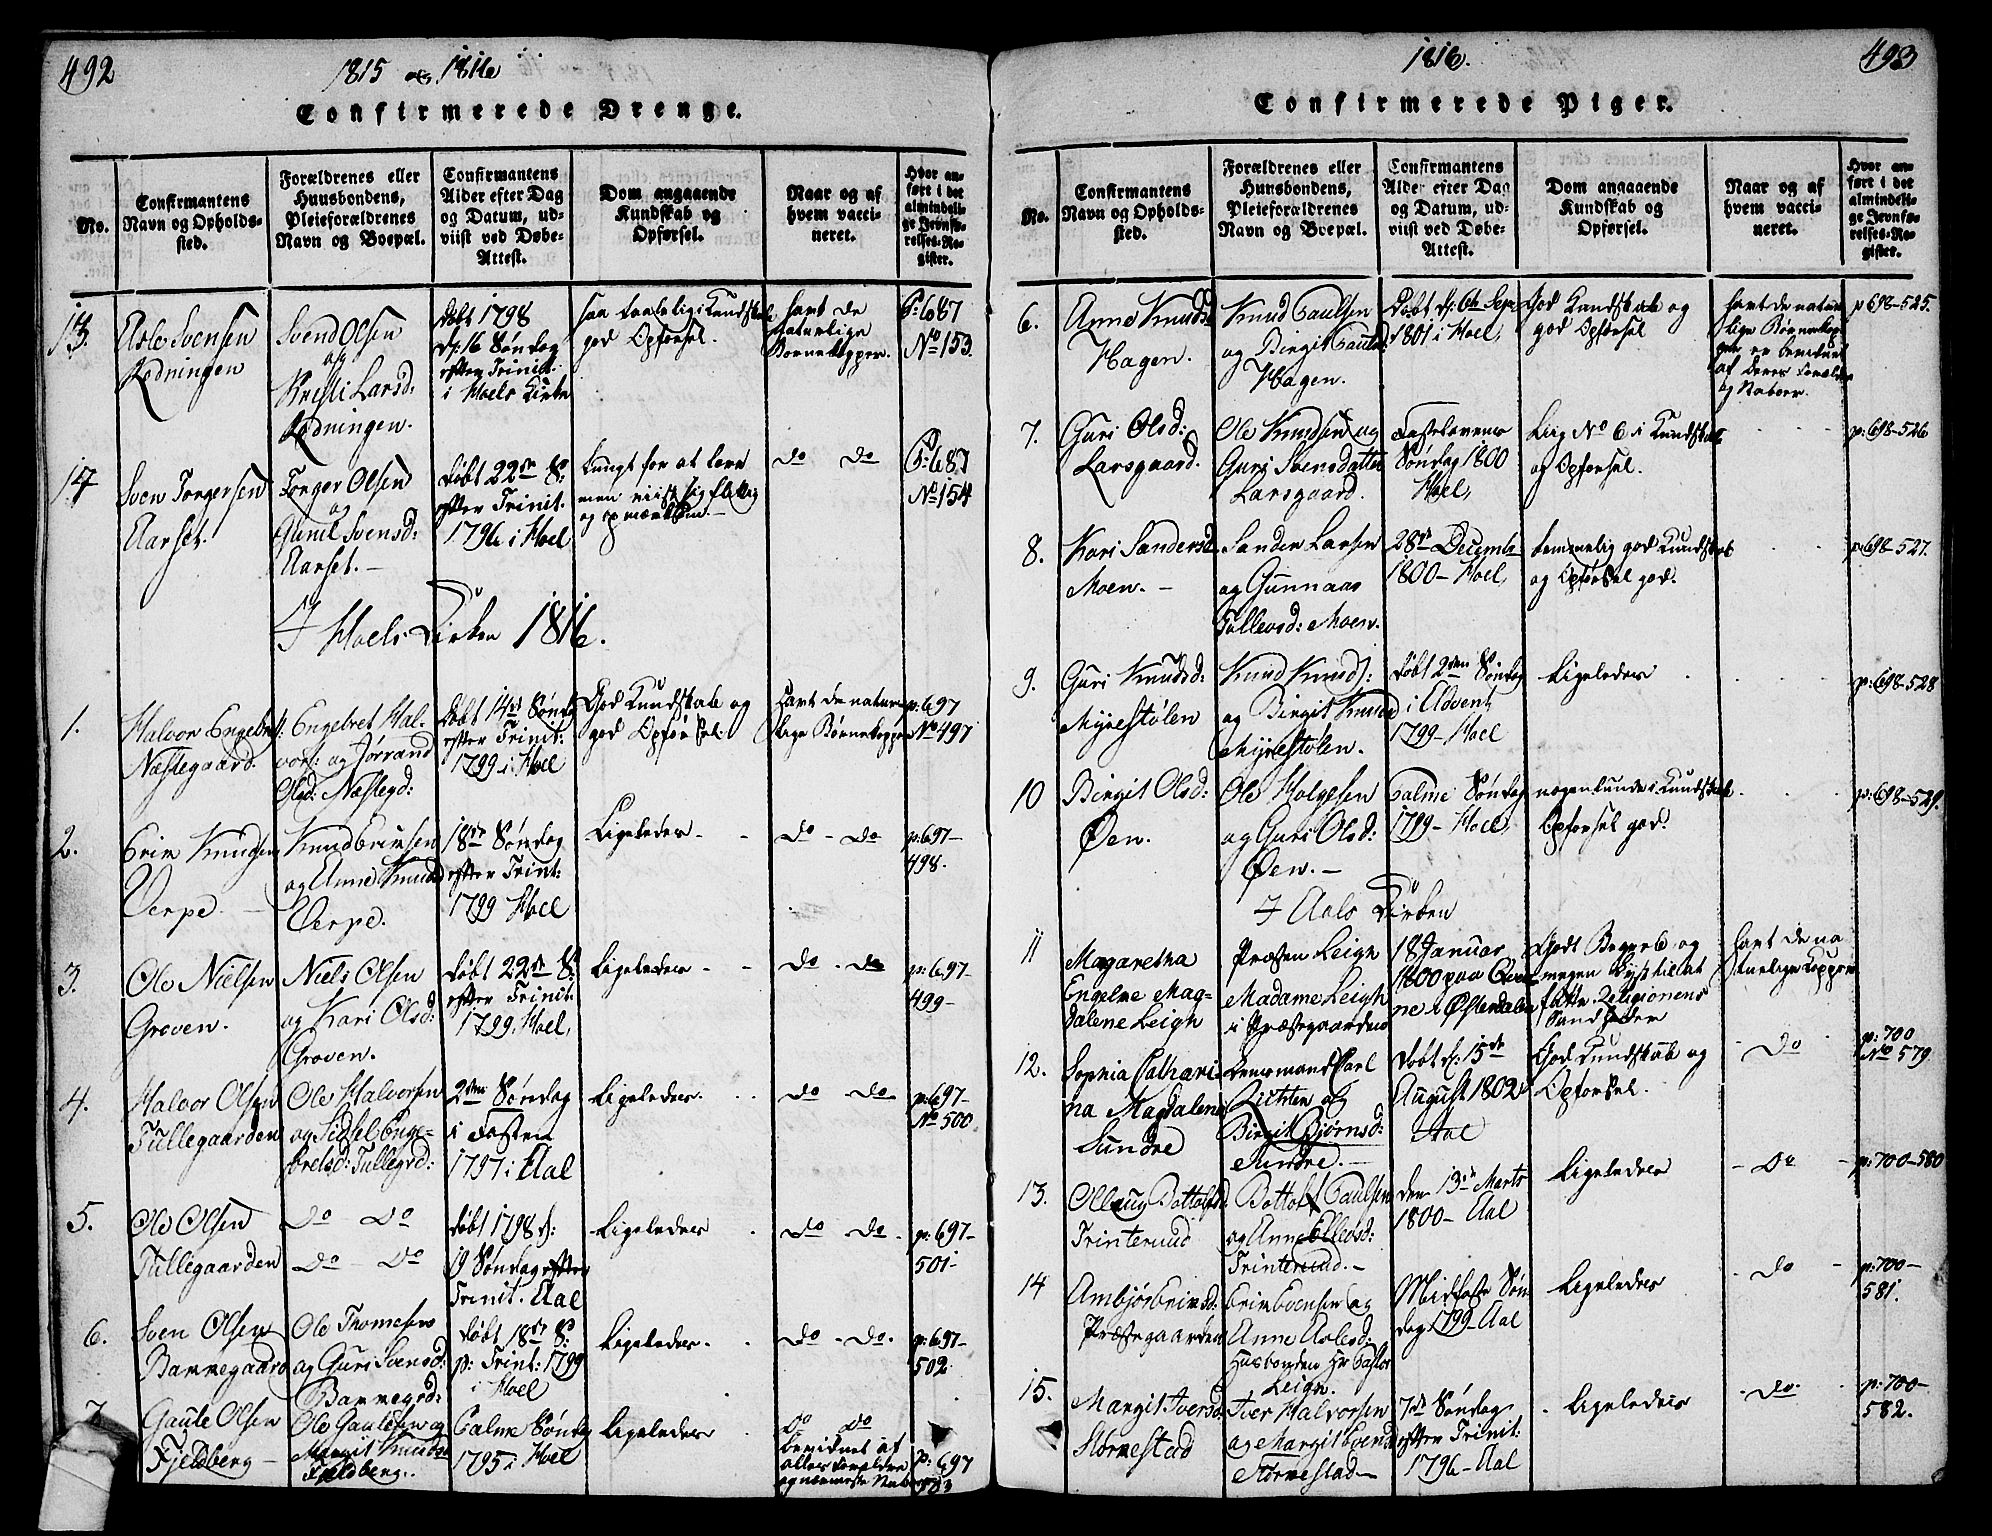 492
1815 og 1816
Confirmerede Drenge.
No.
Confirmantens
Navn og Opholds-
sted.
Forældrenes eller
Huusbondens,
Pleieforældrenes
Navn og Boepæl.
Confirmantens
Alder efter Dag
og Datum, ud-
viist ved Døbe-
Attest.
Dom angaaende
Kundskab og
Opførsel.
Naar og af
hvem vacci-
neret.
Hvor an-
ført i det
almindeli-
ge Jevnfø-
relses-Re-
gister.
13.
Asle Svensen
Rodningen
Svend Olsen
og
Kristi Larsd:
Rodningen.
døbt 1798
d: 16 Søndag
efter Trinit:
i Hoels Kirke
god Opførsel.
havt de
naturlige
Børnekopper.
P: 687
No 153.
14
Sven Torgersen
Aarset.
Torger Olsen
og
Gunil Svensd:
Aarset. -
døbt 22de S:
efter Trinit.
1796 i Hoel
tungt for at lære
men viist sig flittig
og opmærksom. -
do do
P: 687
No 154
I Hoels Kirken 1816.
1.
Halvor Engebret
Næslegaard.
Engebret Hal-
vors: og Jørrand
Olsd: Næslegd:
døbt 14de Sønd:
efter Trinit:
1799 i Hoel
God Kundskab og
god Opførsel.
havt de natur
lige Børnekopper
p: 697
No 497
2.
Erik Knudsen
Verpe. -
Knud Eriksen
og Anne Knudsd
Verpe.
18de Søndag
efter Trinit:
1799 Hoel
Ligeledes -
do - do
p: 697-
498.
3.
Ole Nielsen
Groven.
Niels Olsen
og Kari Olsd:
Groven.
døbt 22de S:
efter Trinit:
1799. Hoel,
Ligeledes -
do - do
p: 697-
499-
4.
Halvor Olsen
Tullegaarden
Ole Halvorsen
og Sidsel Enge-
bretsd: Tullegrd:
2den Søndag
i Fasten
1797 i Aal
Ligeledes.
do do
p: 697-
No 500
5.
Ole Olsen
Tullegaarden
Do - Do
Do - Do
døbt 1798 d:
19 Søndag efter
Trinit. Aal
Ligeledes
do - do.
p: 697-
501-
6.
Sven Olsen
Bammegaard
Ole Thomesen
og Guri Svensd:
Bammegrd:
døbt 18de S:
p: Trint: 1799
i Hoel
Ligeledes.
do - do.
p: 697-
502
7.
Gaute Olsen
Fjeldberg -
Ole Gautesen og
Margit Knudsd
Fjeldberg.
Palme Søndag
1795 i Hoel
Ligeledes
do do
bevidnet af
alles Forældre
og nærmeste Nabo
p: 697
503
1816.
493
Confirmerede Piger.
No.
Confirmantens
Navn og Opholds-
sted.
Forældrenes eller
Huusbondens,
Pleieforældrenes
Navn og Boepæl.
Confirmantens
Alder efter Dag
og Datum, ud-
viist ved Døbe-
Attest.
Dom angaaende
Kundskab og
Opførsel.
Naar og af
hvem vacci-
neret.
Hvor an-
ført i det
almindeli-
ge Jevnfø-
relses-Re-
gister.
6.
Anne Knudsd
Hagen.
Knud Paulsen
og Birgit Paulsd
Hagen.
Døbt d: 6te Sept
1801 i Hoel,
God Kundskab og
god Opførsel
havt de natur
lige Børnekop
per er bevidnet
af deres Forældre
og Naboer.
p 698-525.
7.
Guri Olsd:
Larsgaard.
Ole Knudsen og
Guri Svensdatter
Larsgaard.
Fastelavens
Søndag 1800
Hoel,
Liig No 6 i Kundskab
og Opførsel.
p: 698-526
8.
Kari Sandersd
Moen. -
Sander Larsen
og Gunnaar
Tollevsd: Moen.
28de Decemb
1800 - Hoel,
temmelig god Kundskab
og Opførsel god.
p: 698-527.
9.
Guri Knudsd:
Myrestølen
Knud Knuds:
og Birgit Knud
Myrestølen.
døbt 2den Søndag
i Advent
1799 - Hoel
Ligeledes
p: 698-528
10
Birgit Olsd:
Øen.
Ole Holgesen
og Guri Olsd:
Øen. -
Palme Søndag
1799 - Hoel,
nogenlunde i Kundskab
Opførsel god.
p: 698-529.
I Aals Kirken
11
Magaretha
Engelne Mag-
dalene Leigh
Præsten Leigh
Madame Leigh
i Præstegaarden
18 Januar
1800 paa Qvik
ne i Østerdalen
Godt Begreb og
megen Lyst til at
fatte Religionens
Sandheder
havt de na
turlige Kopper
12.
Sophia Cathari-
na Magdalena
Sundre
Lensmand Carl
Richter og
Birgit Bjørnsd:
Sundre. -
døbt d: 15de
August 1802
Aal
God Kundskab og
Opførsel.
- Do
p: 700
No 579
13.
Ollaug Bottolfsd.
Trinterud
Bottolf Paulsen
og Anne Ellevsd:
Trinterud. -
den 13de Marts
1800 - Aal
Ligeledes
- Do -
p: 700-580
14
Ambjør Eriksd:
Præstegaarden
Erik Evensen og
Anne Aslesd:
Husbonden Hr Pastor
Leigh.
Midfaste Søn
dag 1799 - Aal
Ligeledes
- Do -
p: 700-
581.
15.
Margit Iversd
Størnestad
Iver Halvorsen
og Margit Evensd
Størnestad -
7de Søndag
efter Trinit:
1796 - Aal
Ligeledes
- Do.
p: 700-
582.